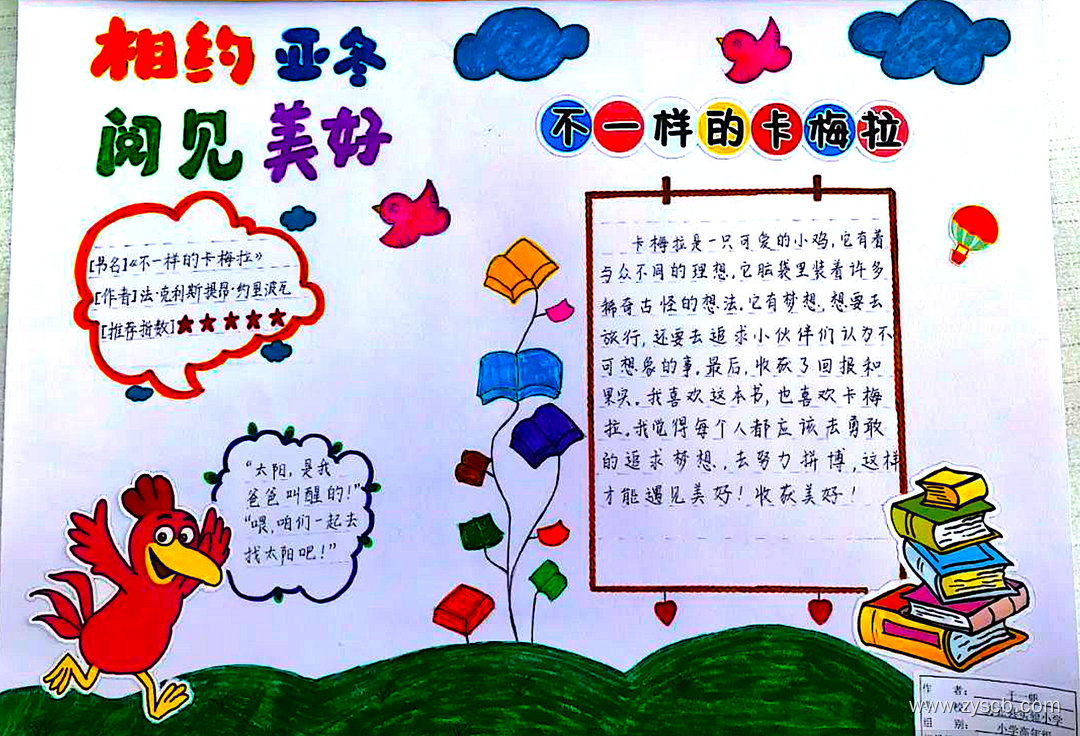 相约亚冬
阅见美好
不一样的卡梅拉
[书名]《不一样的卡梅拉》
[作者]法·克利斯提昂·约里波瓦
[推荐指数]★★★★★
“太阳,是我
爸爸叫醒的!”
“喂,咱们一起去
找太阳吧!”
卡梅拉是一只可爱的小鸡,它有着
与众不同的理想,它脑袋里装着许多
稀奇古怪的想法,它有梦想,想要去
旅行,还要去追求小伙伴们认为不
可想象的事,最后,收获了回报和
果实。我喜欢这本书,也喜欢卡梅
拉。我觉得每个人都应该去勇敢
的追求梦想,去努力拼搏,这样
才能遇见美好!收获美好!
作 者:
校:
小学
组 别:小学高年级
www.zyscb.com